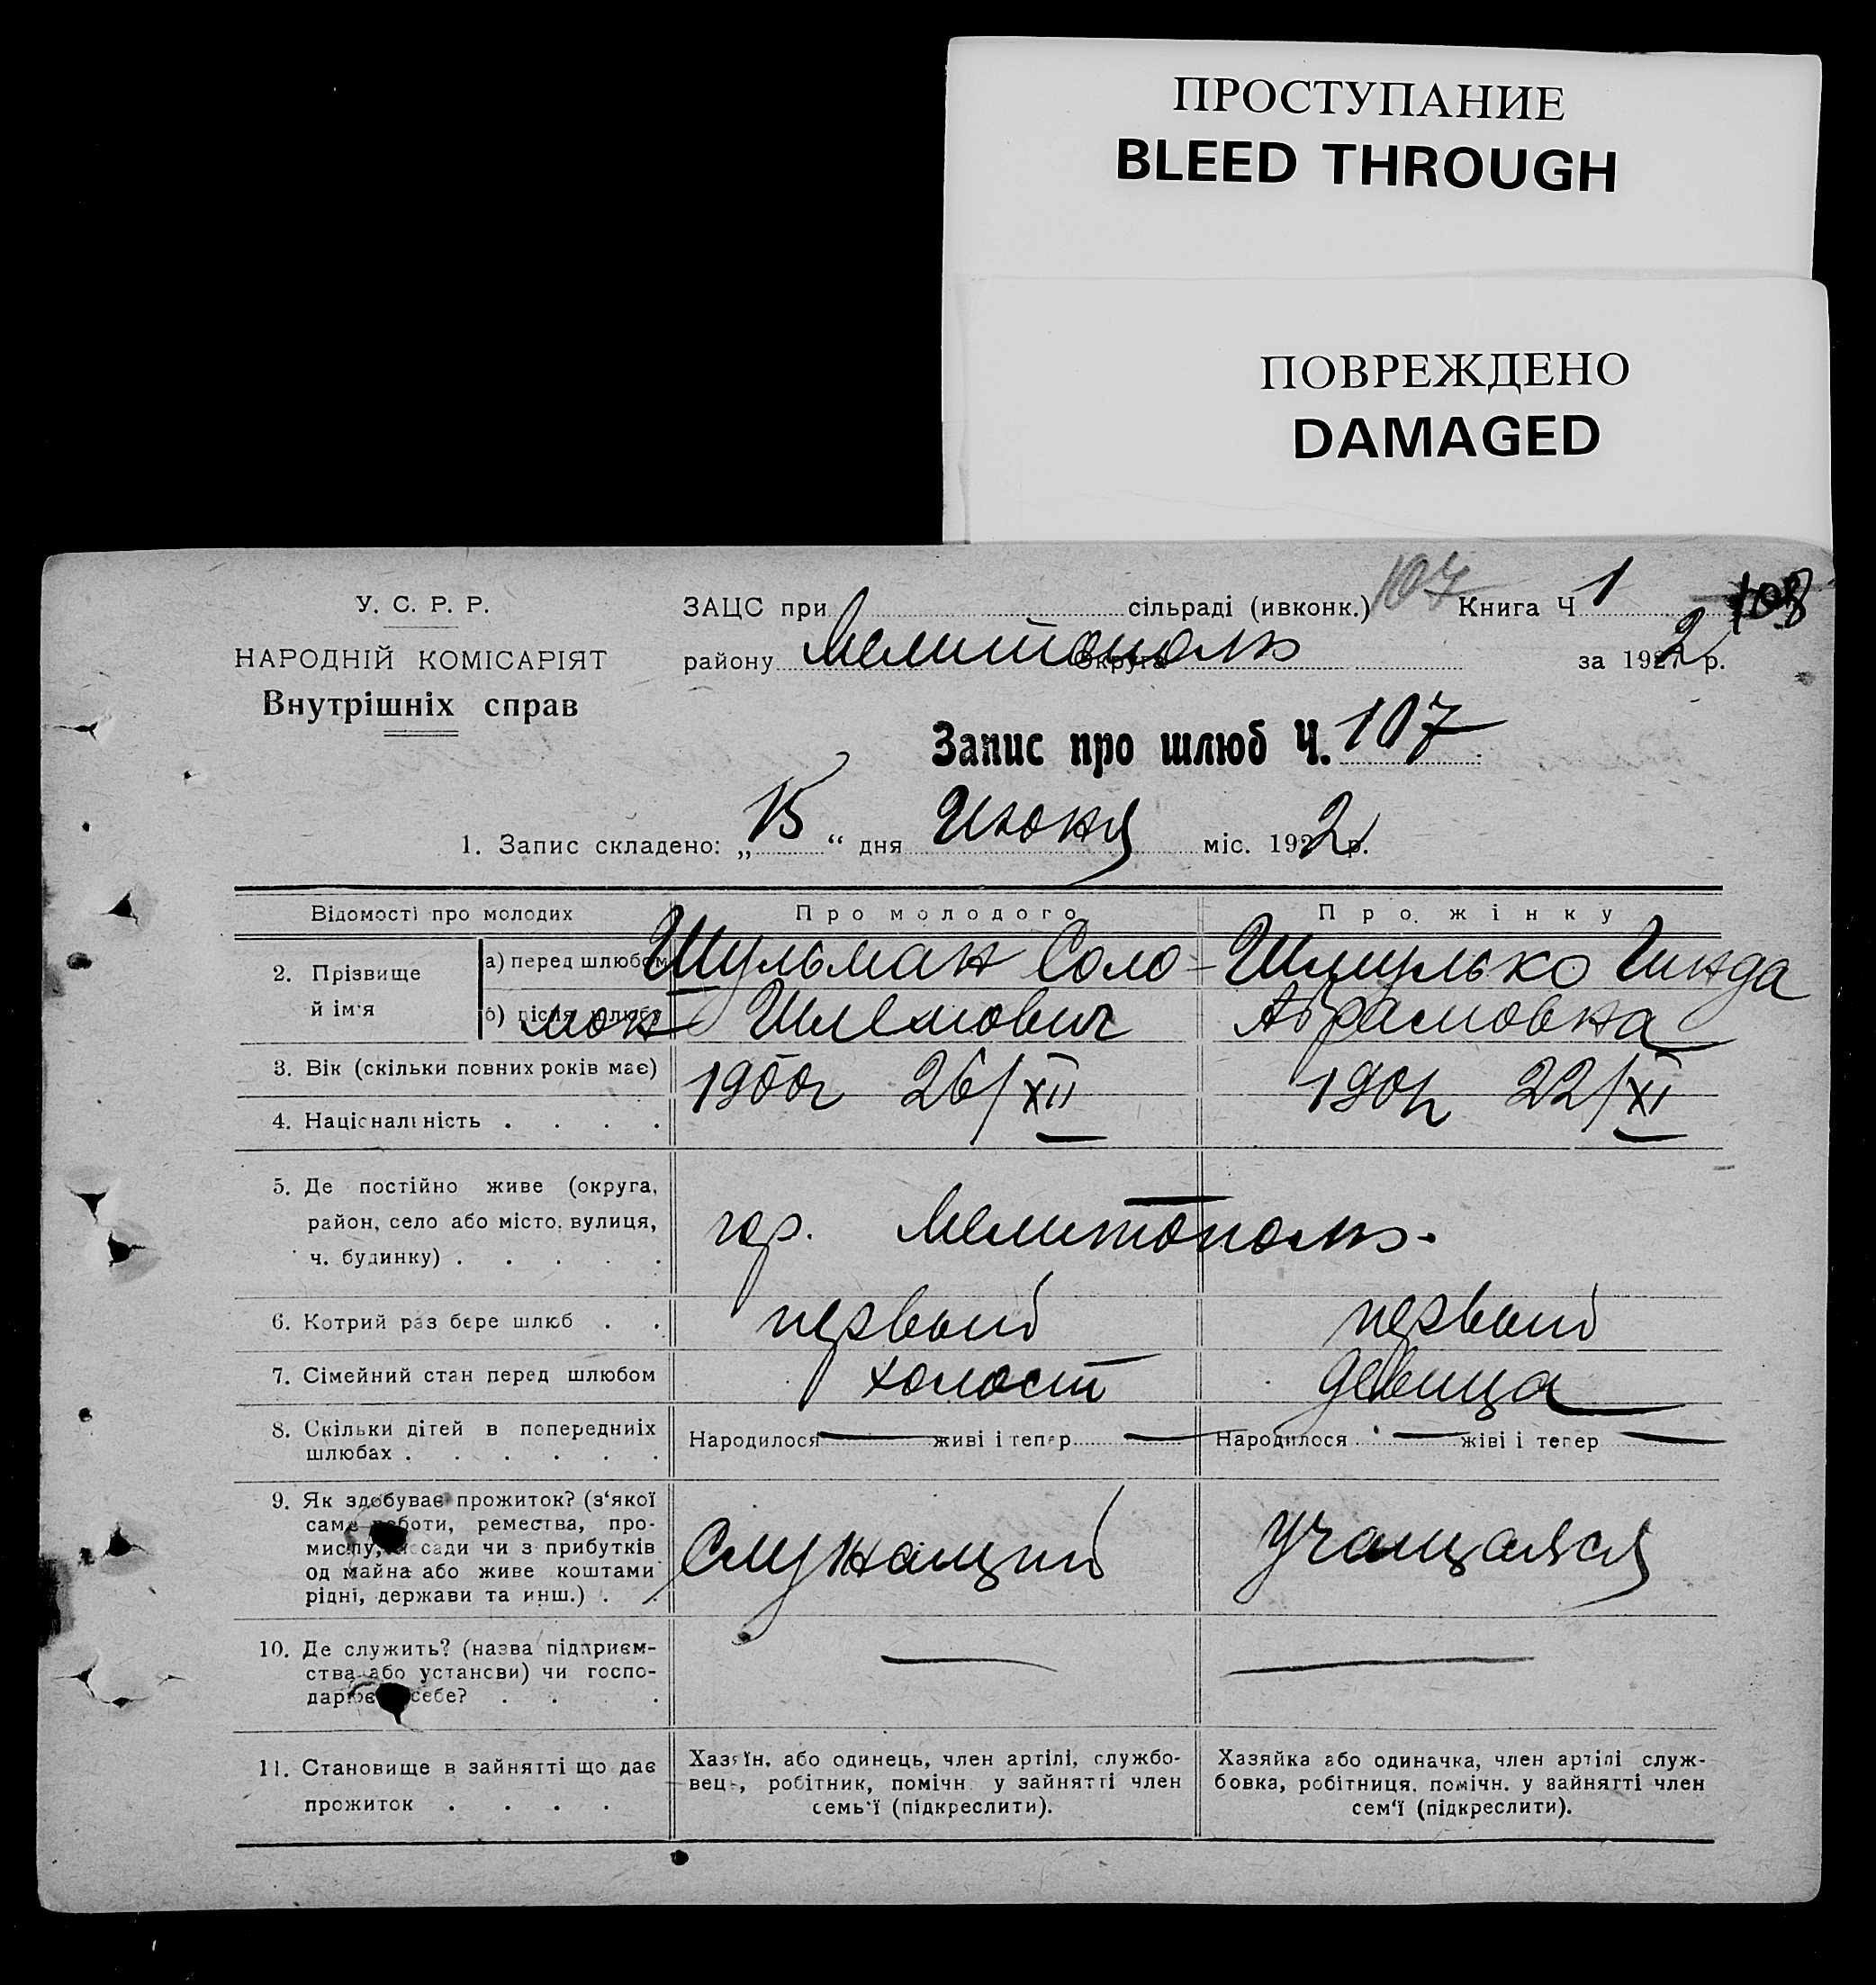 ПРОСТУПАНИЕ
BLEED THROUGH
ПОВРЕЖДЕНО
DAMAGED
У. С. Р. Р.
НАРОДНІЙ КОМІСАРІЯТ
Внутрішніх справ
ЗАЦС при сільраді (ивконк.) 107 Книга Ч 1 108
району Мелитополь округа за 1922 р.
Запис про шлюб Ч. 107
1. Запис складено: „15“ дня Июня міс. 1922 р.
Відомості про молодих Про молодого Про жінку
2. Прізвище й ім'я
а) перед шлюбом Шульман Соло- Шмулько Гинда
б) після шлюбу мон Шлемович Абрамовна
3. Вік (скільки повних років має) 1900г 26/XII 1901г 22/XI
4. Національність . . . .
5. Де постійно живе (округа,
район, село або місто, вулиця,
ч. будинку) . . . . .
гор. Мелитополь.
6. Котрий раз бере шлюб . . первый первый
7. Сімейний стан перед шлюбом холост девица
8. Скільки дітей в попередниіх
шлюбах . . . . . .
Народилося — живі і тепер — Народилося — жіві і тепер —
9. Як здобуває прожиток? (з'якої
саме роботи, ремества, про-
мислу, посади чи з прибутків
од майна або живе коштами
рідні, держави та инш.) . .
Служащий Учащаяся
10. Де служить? (назва підприєм-
ства або установи) чи госпо-
дарює себе? . . . .
— —
11. Становище в зайнятті що дає
прожиток . . . .
Хазяїн, або одинець, член артілі, службо-
вець, робітник, помічн. у зайнятті член
семь'ї (підкреслити).
Хазяйка або одиначка, член артілі служ-
бовка, робітниця, помічн. у зайнятті член
сем'ї (підкреслити).